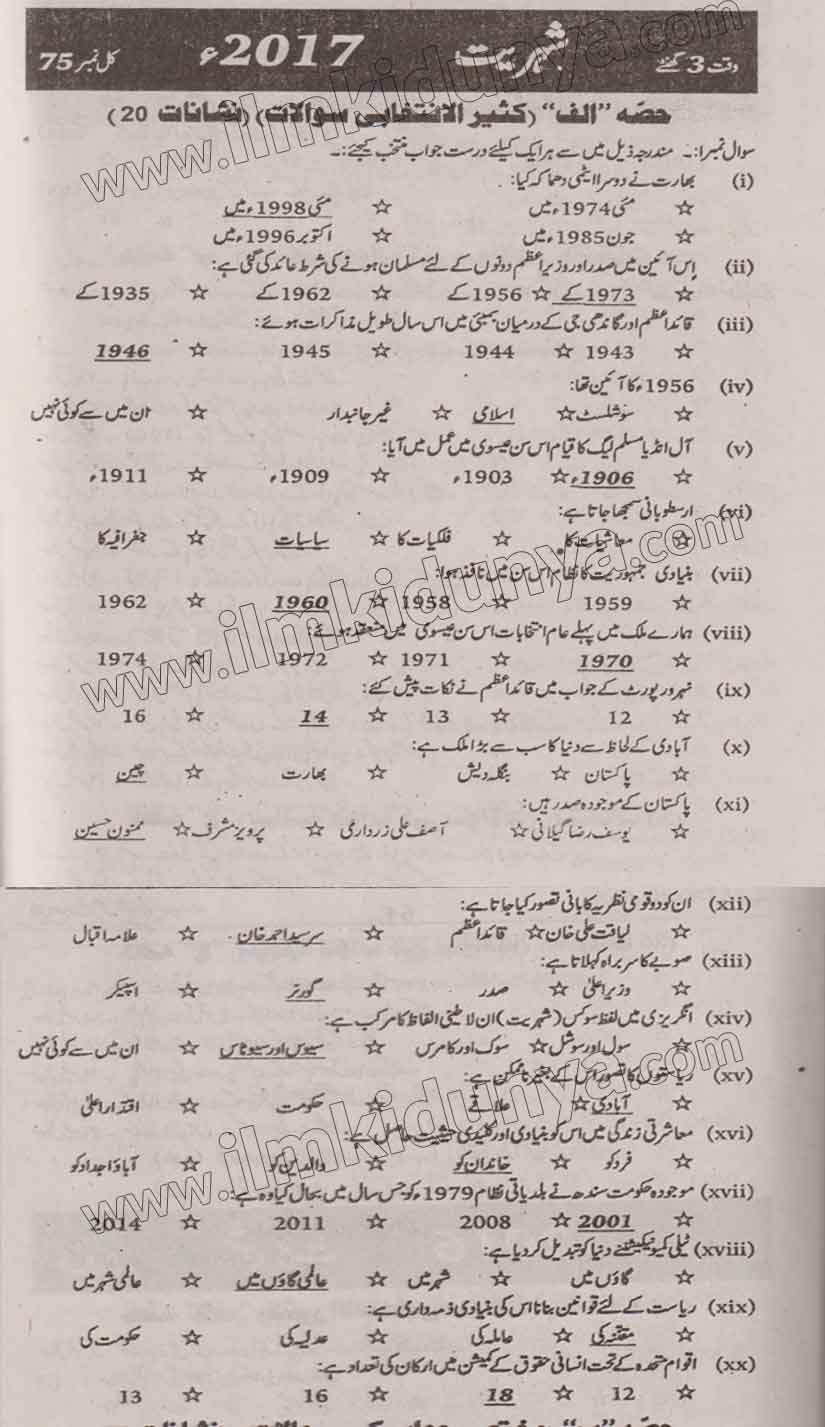 وقت 3 گھنٹے شہریت 2017ء کل نمبر 75
حصّہ "الف" (کثیر الانتخابی سوالات) (نشانات 20)
سوال نمبر1:۔ مندرجہ ذیل میں سے ہر ایک کیلئے درست جواب منتخب کیجئے:۔
(i) بھارت نے دوسرا ایٹمی دھماکہ کیا:
☆ مئی 1974ء میں ☆ مئی 1998ء میں
☆ جون 1985ء میں ☆ اکتوبر 1996ء میں
(ii) اِس آئین میں صدر اور وزیرِاعظم دونوں کے لئے مسلمان ہونے کی شرط عائد کی گئی ہے:
☆ 1973 کے ☆ 1956 کے ☆ 1962 کے ☆ 1935 کے
(iii) قائداعظم اور گاندھی جی کے درمیان بمبئی میں اس سال طویل مذاکرات ہوئے:
☆ 1943 ☆ 1944 ☆ 1945 ☆ 1946
(iv) 1956ء کا آئین تھا:
☆ سوشلسٹ ☆ اسلامی ☆ غیر جانبدار ☆ ان میں سے کوئی نہیں
(v) آل انڈیا مسلم لیگ کا قیام اس سن عیسوی میں عمل میں آیا:
☆ 1906ء ☆ 1903ء ☆ 1909ء ☆ 1911ء
(vi) ارسطو بانی سمجھا جاتا ہے:
☆ معاشیات کا ☆ فلکیات کا ☆ سیاسیات ☆ جغرافیہ کا
(vii) بنیادی جمہوریت کا نظام اس سن میں نافذ ہوا:
☆ 1959 ☆ 1958 ☆ 1960 ☆ 1962
(viii) ہمارے ملک میں پہلے عام انتخابات اس سن عیسوی میں منعقد ہوئے:
☆ 1970 ☆ 1971 ☆ 1972 ☆ 1974
(ix) نہرو رپورٹ کے جواب میں قائداعظم نے نکات پیش کئے:
☆ 12 ☆ 13 ☆ 14 ☆ 16
(x) آبادی کے لحاظ سے دنیا کا سب سے بڑا ملک ہے:
☆ پاکستان ☆ بنگلہ دیش ☆ بھارت ☆ چین
(xi) پاکستان کے موجودہ صدر ہیں:
☆ یوسف رضا گیلانی ☆ آصف علی زرداری ☆ پرویز مشرف ☆ ممنون حسین
(xii) ان کو دو قومی نظریہ کا بانی تصور کیا جاتا ہے:
☆ لیاقت علی خان ☆ قائداعظم ☆ سرسید احمد خان ☆ علامہ اقبال
(xiii) صوبے کا سربراہ کہلاتا ہے:
☆ وزیراعلیٰ ☆ صدر ☆ گورنر ☆ اسپیکر
(xiv) انگریزی میں لفظ سوکس (شہریت) ان لاطینی الفاظ کا مرکب ہے:
☆ سول اور سوشل ☆ سوک اور کامرس ☆ سیوس اور سیوٹاس ☆ ان میں سے کوئی نہیں
(xv) ریاستوں کا تصور اس کے بغیر ناممکن ہے:
☆ آبادی ☆ علاقے ☆ حکومت ☆ اقتدار اعلیٰ
(xvi) معاشرتی زندگی میں اس کو بنیادی اور کلیدی حیثیت حاصل ہے:
☆ فرد کو ☆ خاندان کو ☆ والدین کو ☆ آباؤ اجداد کو
(xvii) موجودہ حکومت سندھ نے بلدیاتی نظام 1979ء کو جس سال میں بحال کیا وہ ہے:
☆ 2001 ☆ 2008 ☆ 2011 ☆ 2014
(xviii) ٹیلی کمیونیکیشنے دنیا کو تبدیل کر دیا ہے:
☆ گاؤں میں ☆ شہر میں ☆ عالمی گاؤں میں ☆ عالمی شہر میں
(xix) ریاست کے لئے قوانین بنانا اس کی بنیادی ذمہ داری ہے:
☆ مقننہ کی ☆ عاملہ کی ☆ عدلیہ کی ☆ حکومت کی
(xx) اقوام متحدہ کے تحت انسانی حقوق کے کمیشن میں ارکان کی تعداد ہے:
☆ 12 ☆ 18 ☆ 16 ☆ 13
www.ilmkidunya.com
www.ilmkidunya.com
www.ilmkidunya.com